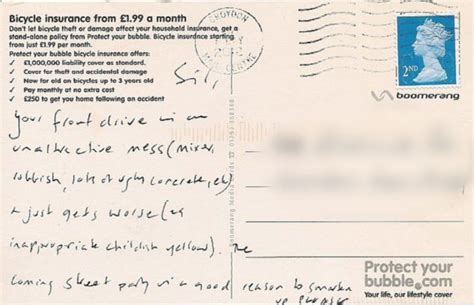 Bicycle insurance from £1.99 a month
Don't let bicycle theft or damage affect your household insurance, get a
stand-alone policy from Protect your bubble. Bicycle insurance starting
from just £1.99 per month.
Protect your bubble bicycle insurance offers:
✓ £1,000,000 liability cover as standard.
✓ Cover for theft and accidental damage
✓ Now for old an bicycles up to 3 years old
✓ Pay monthly at no extra cost
✓ £250 to get you home following an accident
CROYDON
CENTRE
2ND
boomerang
Sir,
Your front drive is an
unattractive mess (mixer,
rubbish, lots of ugly concrete, etc)
& just gets worse (eg
inappropriate childish yellow). The
coming street party is a good reason to smarten
up PLEASE
Boomerang Media Cards
Protect your
bubble.com
Your life, our lifestyle cover